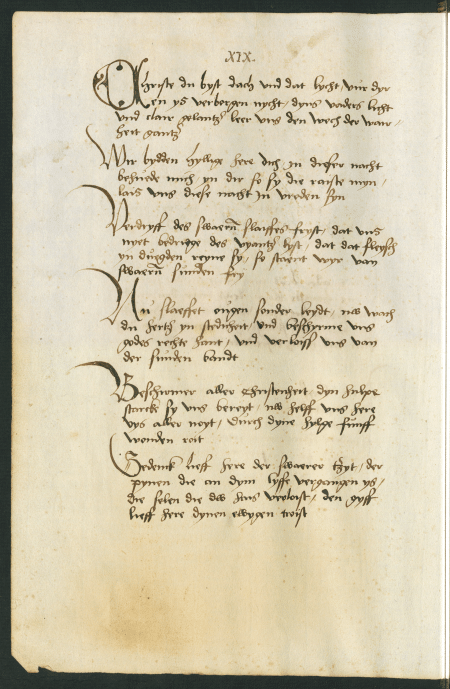 XIX.
Christe du byst dach vnd dat lycht vur dyr
en ys verborgen nycht / dyns vaders licht
vnd clare gelantz leer vns den wech der war /
heit gantz
Wir bydden hyllige here dich yn dieser nacht
behuede mich yn dir so sy die raiste myn /
lais vns diese nacht in vreden syn
Verdryff des swaern slaiffes fryst / dat vns
nyet bedriege des vyantz lyst / dat dat fleysch
yn duegden reyne sy / so staent wyr van
swaern sunden fry
Nu slaeffet ougen sonder leydt / nu wach
du hertz yn stedicheit / vnd beschyrme vns
godes rechte hant / vnd verloiss vns van
der sunden bandt
Beschirmer aller christenheit dyn hulpe
starcke sy vns bereyt / nu helff vns here
vys aller noyt / durch dyne hylge funff
wonden roit
Gedenck lieff here der swaerer tzyt / der
pynen die an dym lyffe vergangen ys /
die selen die du hais verloist / den gyff
lieff here dynen ewygen troist